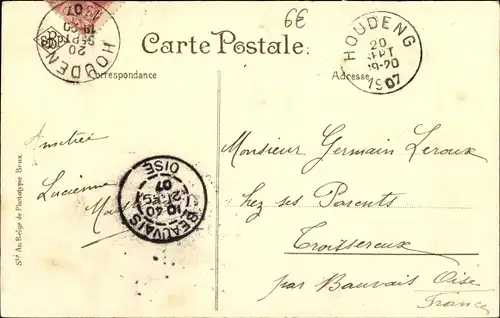 6€
Carte Postale
Correspondance
Adresse
HOUDENG
20
SEPT
19-20
07
HOUDENG
20
SEPT
19-20
1907
Amitié
Lucienne
BEAUVAIS
OISE
10 40
07
Monsieur Germain Leroux
chez ses Parents
Troissereux
par Bauvais Oise
France
Sté An. Belge de Phototypie Brux.